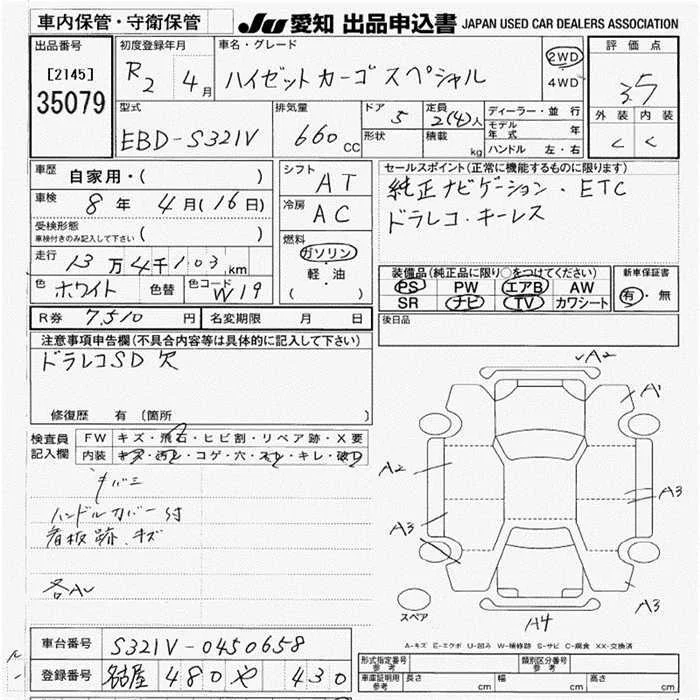 車内保管・守衛保管
JU 愛知 出品申込書 JAPAN USED CAR DEALERS ASSOCIATION
出品番号
[2145]
35079
初度登録年月
R2 4月
車名・グレード
ハイゼットカーゴ スペシャル
2WD
4WD
評価点
3.5
外装 内装
C C
型式
EBD-S321V
排気量
660 CC
ドア 5
形状
定員 2(4)人
積載 kg
ディーラー・並行
モデル年式 年
ハンドル 左・右
車歴
自家用・( )
車検
8年 4月(16日)
受検形態
車検付きのみ記入して下さい ( )
走行
13万4千103km
色 ホワイト 色替 色コード W19
シフト
AT
冷房
AC
燃料
ガソリン
軽・油
( )
セールスポイント(正常に機能するものに限ります)
純正ナビゲーション・ETC
ドラレコ・キーレス
装備品(純正品に限り○をつけてください)
PS PW エアB AW
SR ナビ TV カワシート
新車保証書
有・無
R券 7,510円 名変期限 月 日
後日品
注意事項申告欄(不具合内容等は具体的に記入して下さい)
ドラレコSD欠
修復歴 有 (箇所 )
検査員記入欄
FW キズ・飛石・ヒビ割・リペア跡・X要
内装 キズ・汚レ・コゲ・穴・スレ・キレ・破レ
ハンドルカバー付
看板跡・キズ
各AU
A2
A1
A2
A3
A3
A3
A4
スペア
A-キズ E-エクボ U-凹み W-補修跡 S-サビ C-腐食 XX-交換済
車台番号 S321V-0450658
登録番号 名古屋 480 や 430
形式指定番号 参考
類別区分番号 参考
車庫証明用 参考 長さ cm 幅 cm 高さ cm